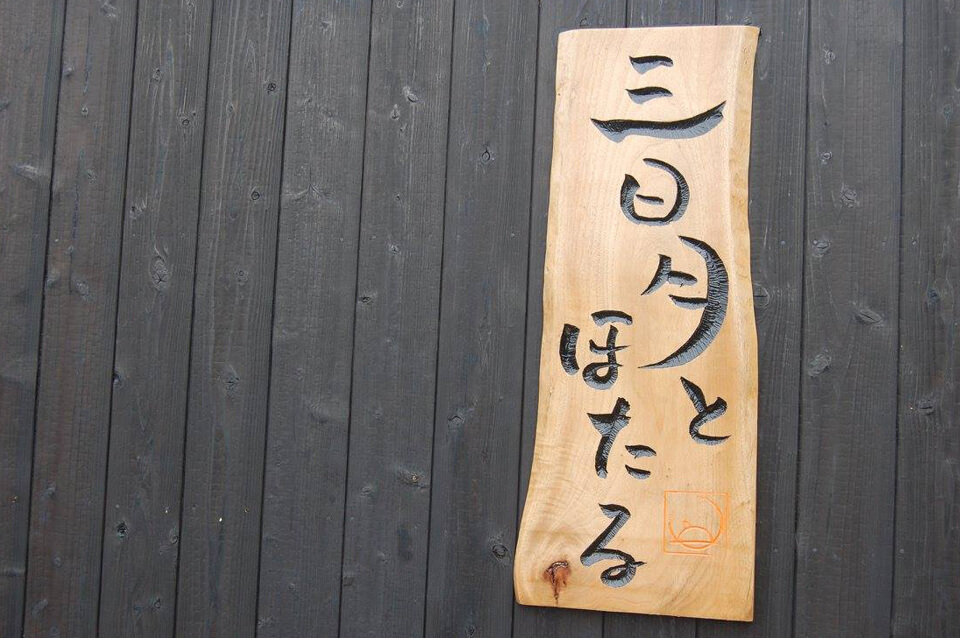 三日月と
ほたる